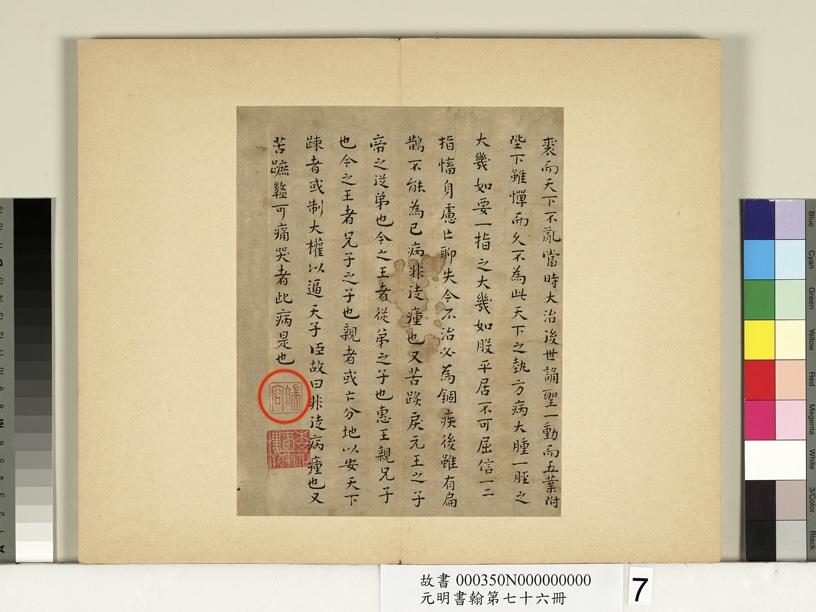 裘而天下不亂當時大治後世誦聖一動而五業附
陛下雖憚而久不為此天下之埶方病大腫一脛之
大幾如要一指之大幾如股平居不可屈信一二
指慉身慮亡聊失今不治必為錮疾後雖有扁
鵲不能為已病非徒瘇也又苦蹊戾元王之子
帝之從弟也今之王者從弟之子也惠王親兄子
也今之王者兄子之子也親者或亡分地以安天下
踈者或制大權以逼天子臣故曰非徒病瘇也又
苦蹠盭可痛哭者此病是也
端容
故書 000350N000000000
元明書翰第七十六冊
7
Blue
Cyan
Green
Yellow
Red
Magenta
White
3/Color
Black